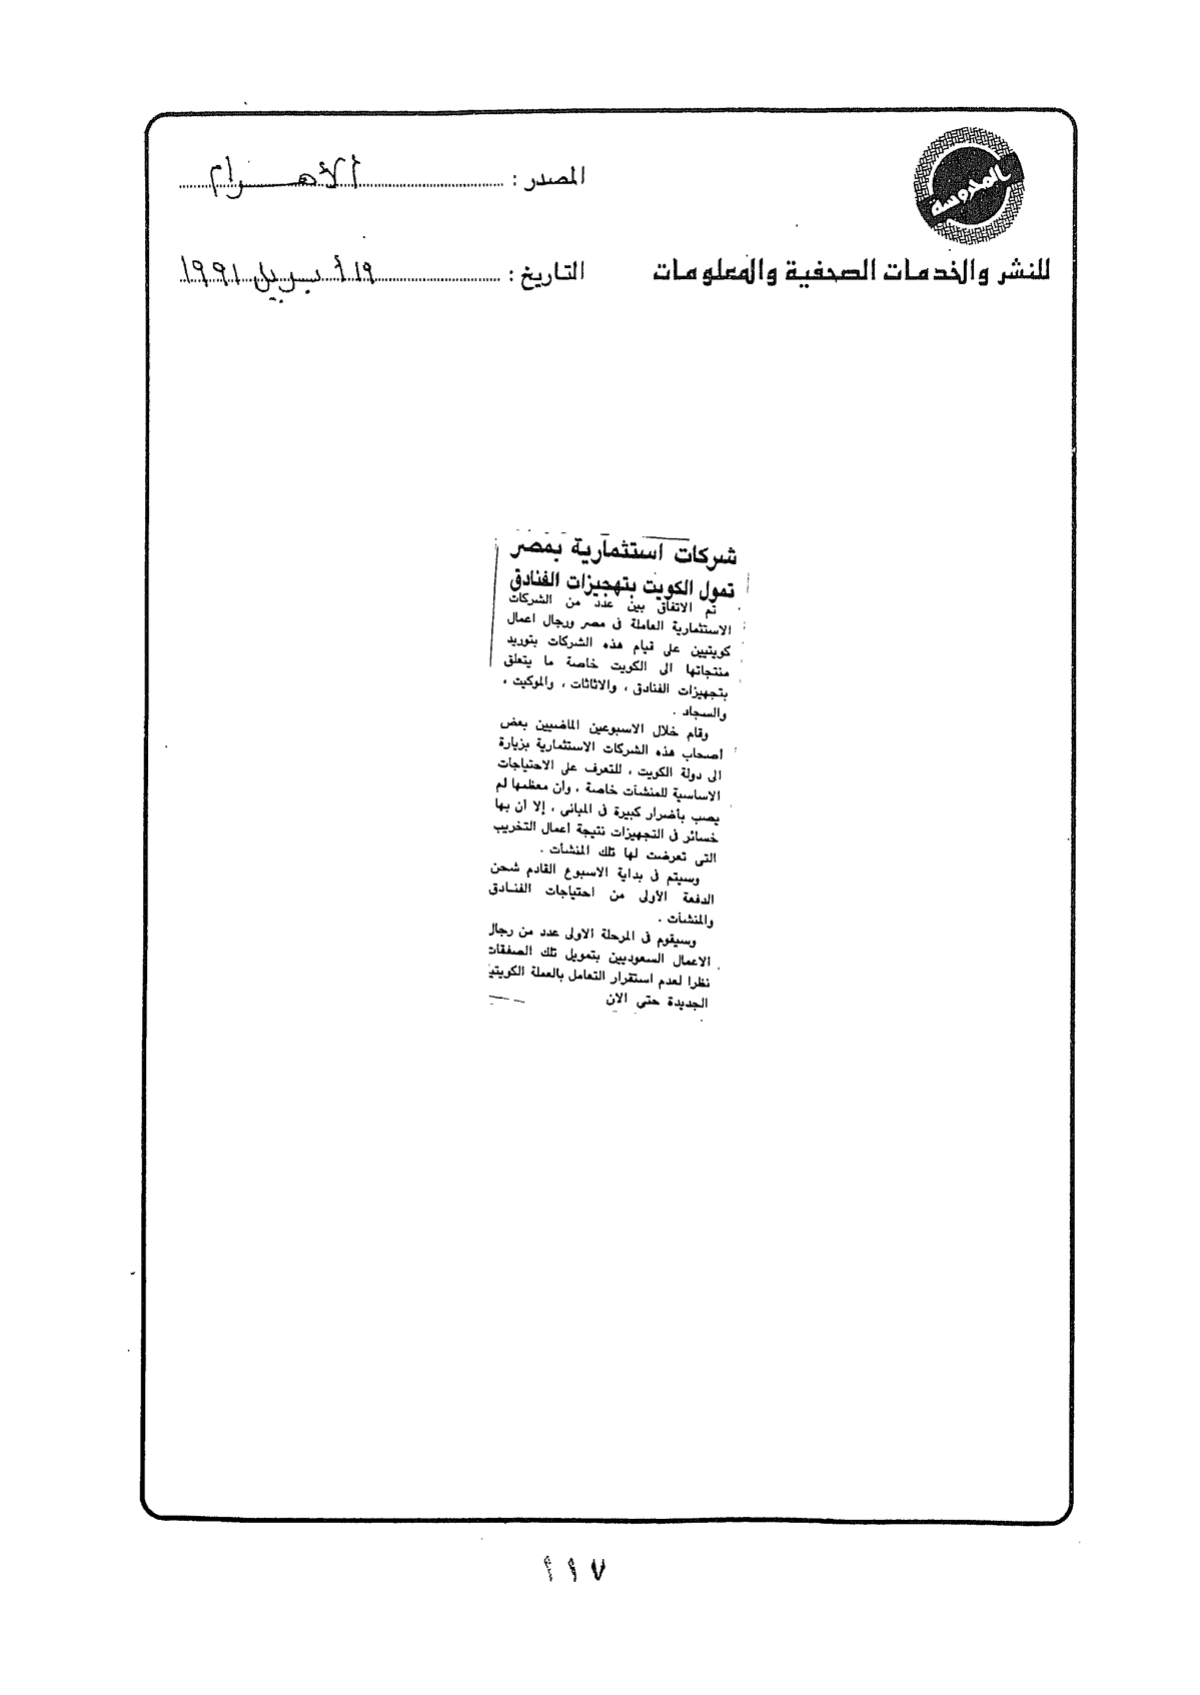 بالمحروسة
المصدر : الأهرام
للنشر والخدمات الصحفية والمعلومات
التاريخ : ١٩ أبريل ١٩٩١
شركات استثمارية بمصر
تمول الكويت بتهجيزات الفنادق
تم الاتفاق بين عدد من الشركات
الاستثمارية العاملة فى مصر ورجال اعمال
كويتيين على قيام هذه الشركات بتوريد
منتجاتها الى الكويت خاصة ما يتعلق
بتجهيزات الفنادق ، والاثاثات ، والموكيت ،
والسجاد .
وقام خلال الاسبوعين الماضيين بعض
اصحاب هذه الشركات الاستثمارية بزيارة
الى دولة الكويت ، للتعرف على الاحتياجات
الاساسية للمنشآت خاصة ، وان معظمها لم
يصب بأضرار كبيرة فى المبانى ، إلا ان بها
خسائر فى التجهيزات نتيجة اعمال التخريب
التى تعرضت لها تلك المنشآت .
وسيتم فى بداية الاسبوع القادم شحن
الدفعة الأولى من احتياجات الفنادق
والمنشآت .
وسيقوم فى المرحلة الاولى عدد من رجال
الاعمال السعوديين بتمويل تلك الصفقات
نظرا لعدم استقرار التعامل بالعملة الكويتية
الجديدة حتى الان